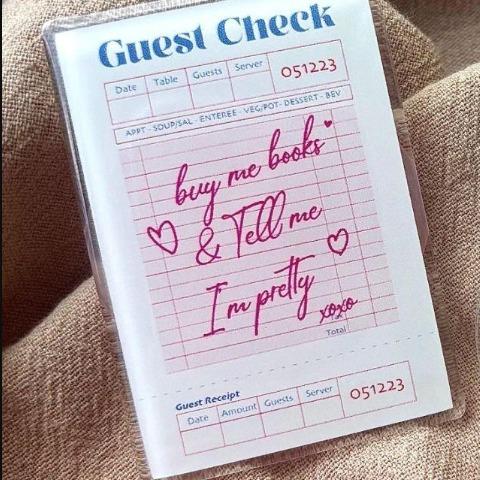 Guest Check
Date Table Guests Server 051223
APPT - SOUP/SAL - ENTEREE - VEG/POT- DESSERT - BEV
buy me books
& Tell me
I'm pretty
xoxo
Total
Guest Receipt
Date Amount Guests Server 051223